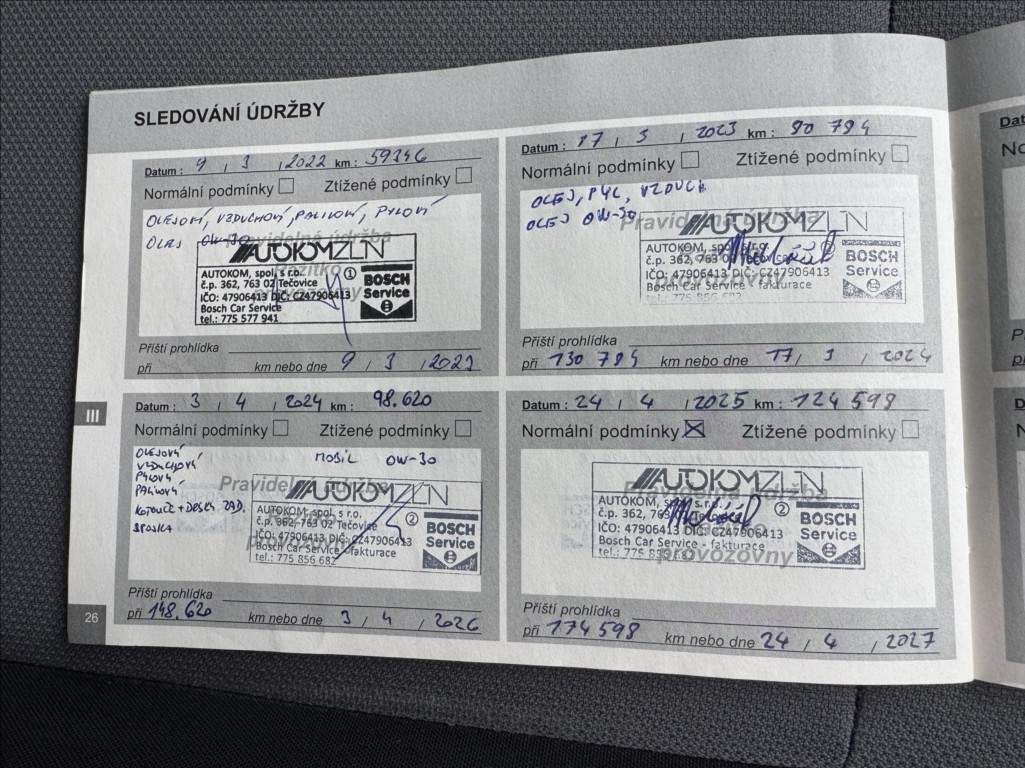 SLEDOVÁNÍ ÚDRŽBY
Datum : 9 / 3 / 2022 km : 59346
Normální podmínky Ztížené podmínky
OLEJOVÝ, VZDUCHOVÝ, PALIVOVÝ, PYLOVÝ
OLEJ 0W-30
Pravidelná údržba
AUTOKOMZLÍN
AUTOKOM, spol. s r.o. 1
č.p. 362, 763 02 Tečovice
IČO: 47906413 DIČ: CZ47906413
Bosch Car Service
tel.: 775 577 941
BOSCH
Service
Razítko
provozovny
Příští prohlídka
při km nebo dne 9 / 3 / 2023
Datum : 17 / 3 / 2023 km : 90 784
Normální podmínky Ztížené podmínky
OLEJ, PYL, VZDUCH
OLEJ 0W-30
Pravidelná údržba
AUTOKOMZLÍN
AUTOKOM, spol. s r.o.
č.p. 362, 763 02
IČO: 47906413 DIČ: CZ47906413
Bosch Car Service - fakturace
tel.: 775 856 682
BOSCH
Service
provozovny
Příští prohlídka
při 130 784 km nebo dne 17 / 3 / 2024
III
Datum : 3 / 4 / 2024 km : 98.620
Normální podmínky Ztížené podmínky
OLEJOVÝ MOBIL 0W-30
VZDUCHOVÝ
PYLOVÝ
PALIVOVÝ
KOTOUČE + DESKY ZAD.
SPOJKA
Pravidelná údržba
AUTOKOMZLÍN
AUTOKOM, spol. s r.o. 2
č.p. 362, 763 02 Tečovice
IČO: 47906413 DIČ: CZ47906413
Bosch Car Service - fakturace
tel.: 775 856 682
BOSCH
Service
provozovny
Příští prohlídka
při 148.620 km nebo dne 3 / 4 / 2026
Datum : 24 / 4 / 2025 km : 124 598
Normální podmínky Ztížené podmínky
Pravidelná údržba
AUTOKOMZLÍN
AUTOKOM, spol. s r.o. 2
č.p. 362, 763
IČO: 47906413 DIČ: CZ47906413
Bosch Car Service - fakturace
tel.: 775
BOSCH
Service
provozovny
Příští prohlídka
při 174 598 km nebo dne 24 / 4 / 2027
26